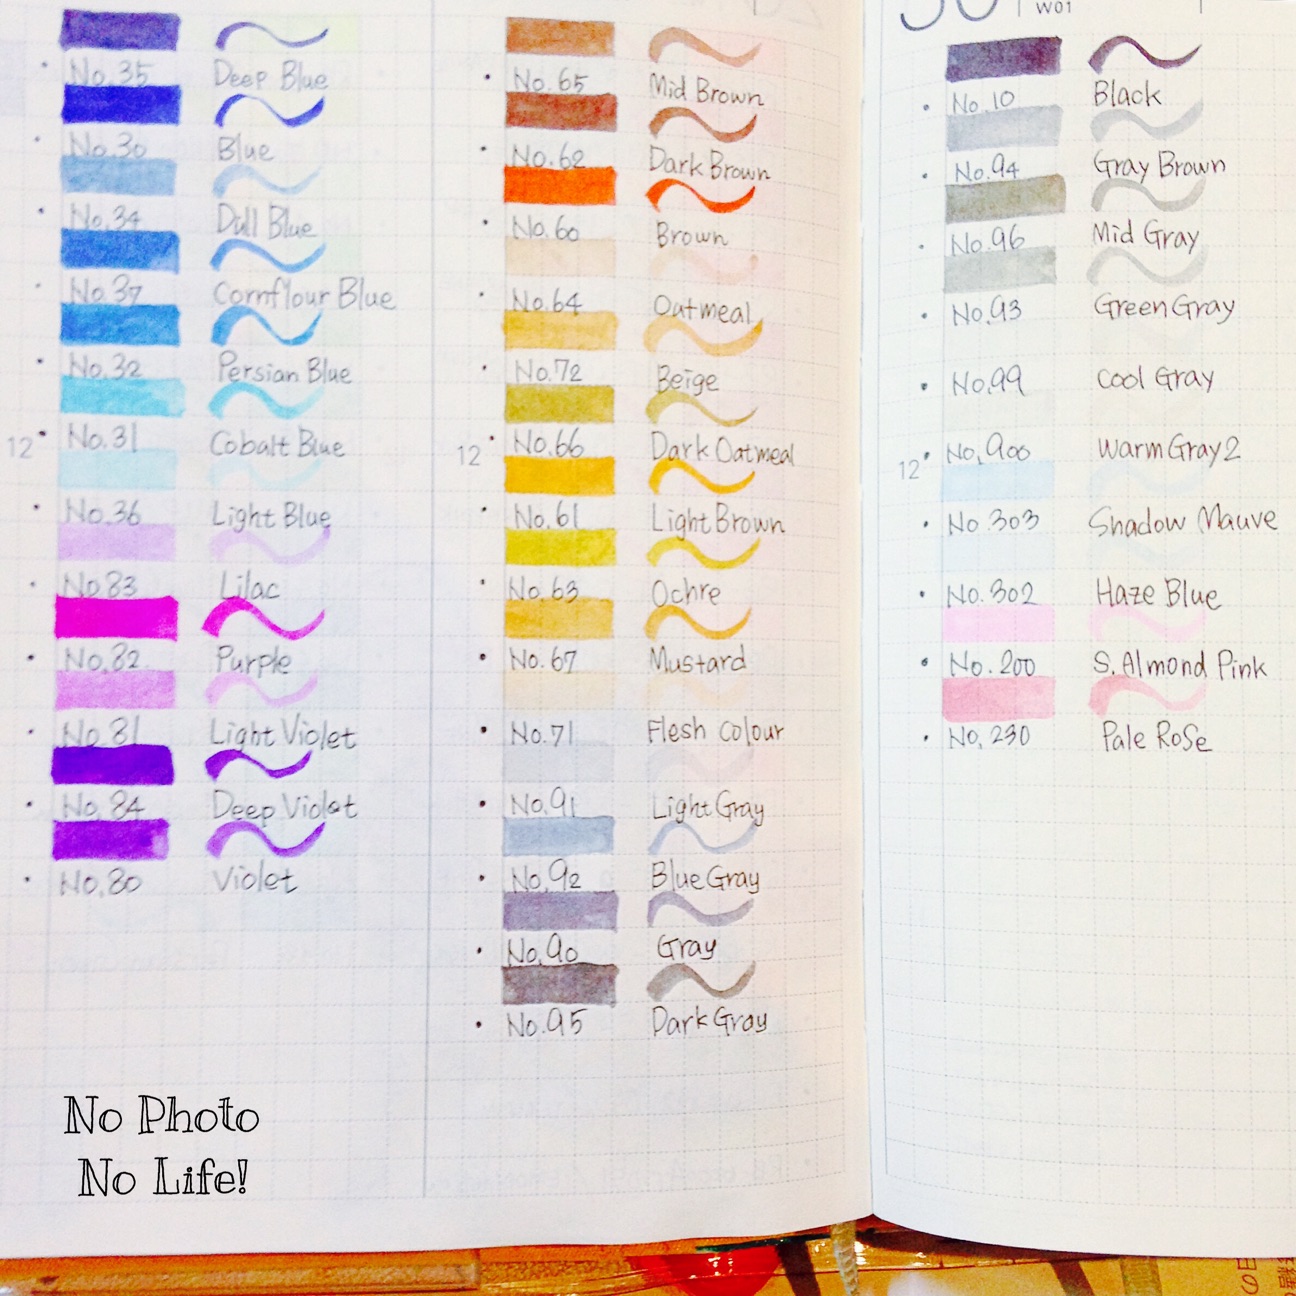 No.35 Deep Blue
No.30 Blue
No.34 Dull Blue
No.37 Cornflour Blue
No.32 Persian Blue
12 No.31 Cobalt Blue
No.36 Light Blue
No.83 Lilac
No.82 Purple
No.81 Light Violet
No.84 Deep Violet
No.80 Violet
No.65 Mid Brown
No.62 Dark Brown
No.60 Brown
No.64 Oatmeal
No.72 Beige
12 No.66 Dark Oatmeal
No.61 Light Brown
No.63 Ochre
No.67 Mustard
No.71 Flesh Colour
No.91 Light Gray
No.92 Blue Gray
No.90 Gray
No.95 Dark Gray
W01
No.10 Black
No.94 Gray Brown
No.96 Mid Gray
No.93 Green Gray
No.99 Cool Gray
12 No.900 Warm Gray 2
No.303 Shadow Mauve
No.302 Haze Blue
No.200 S. Almond Pink
No.230 Pale Rose
No Photo
No Life!